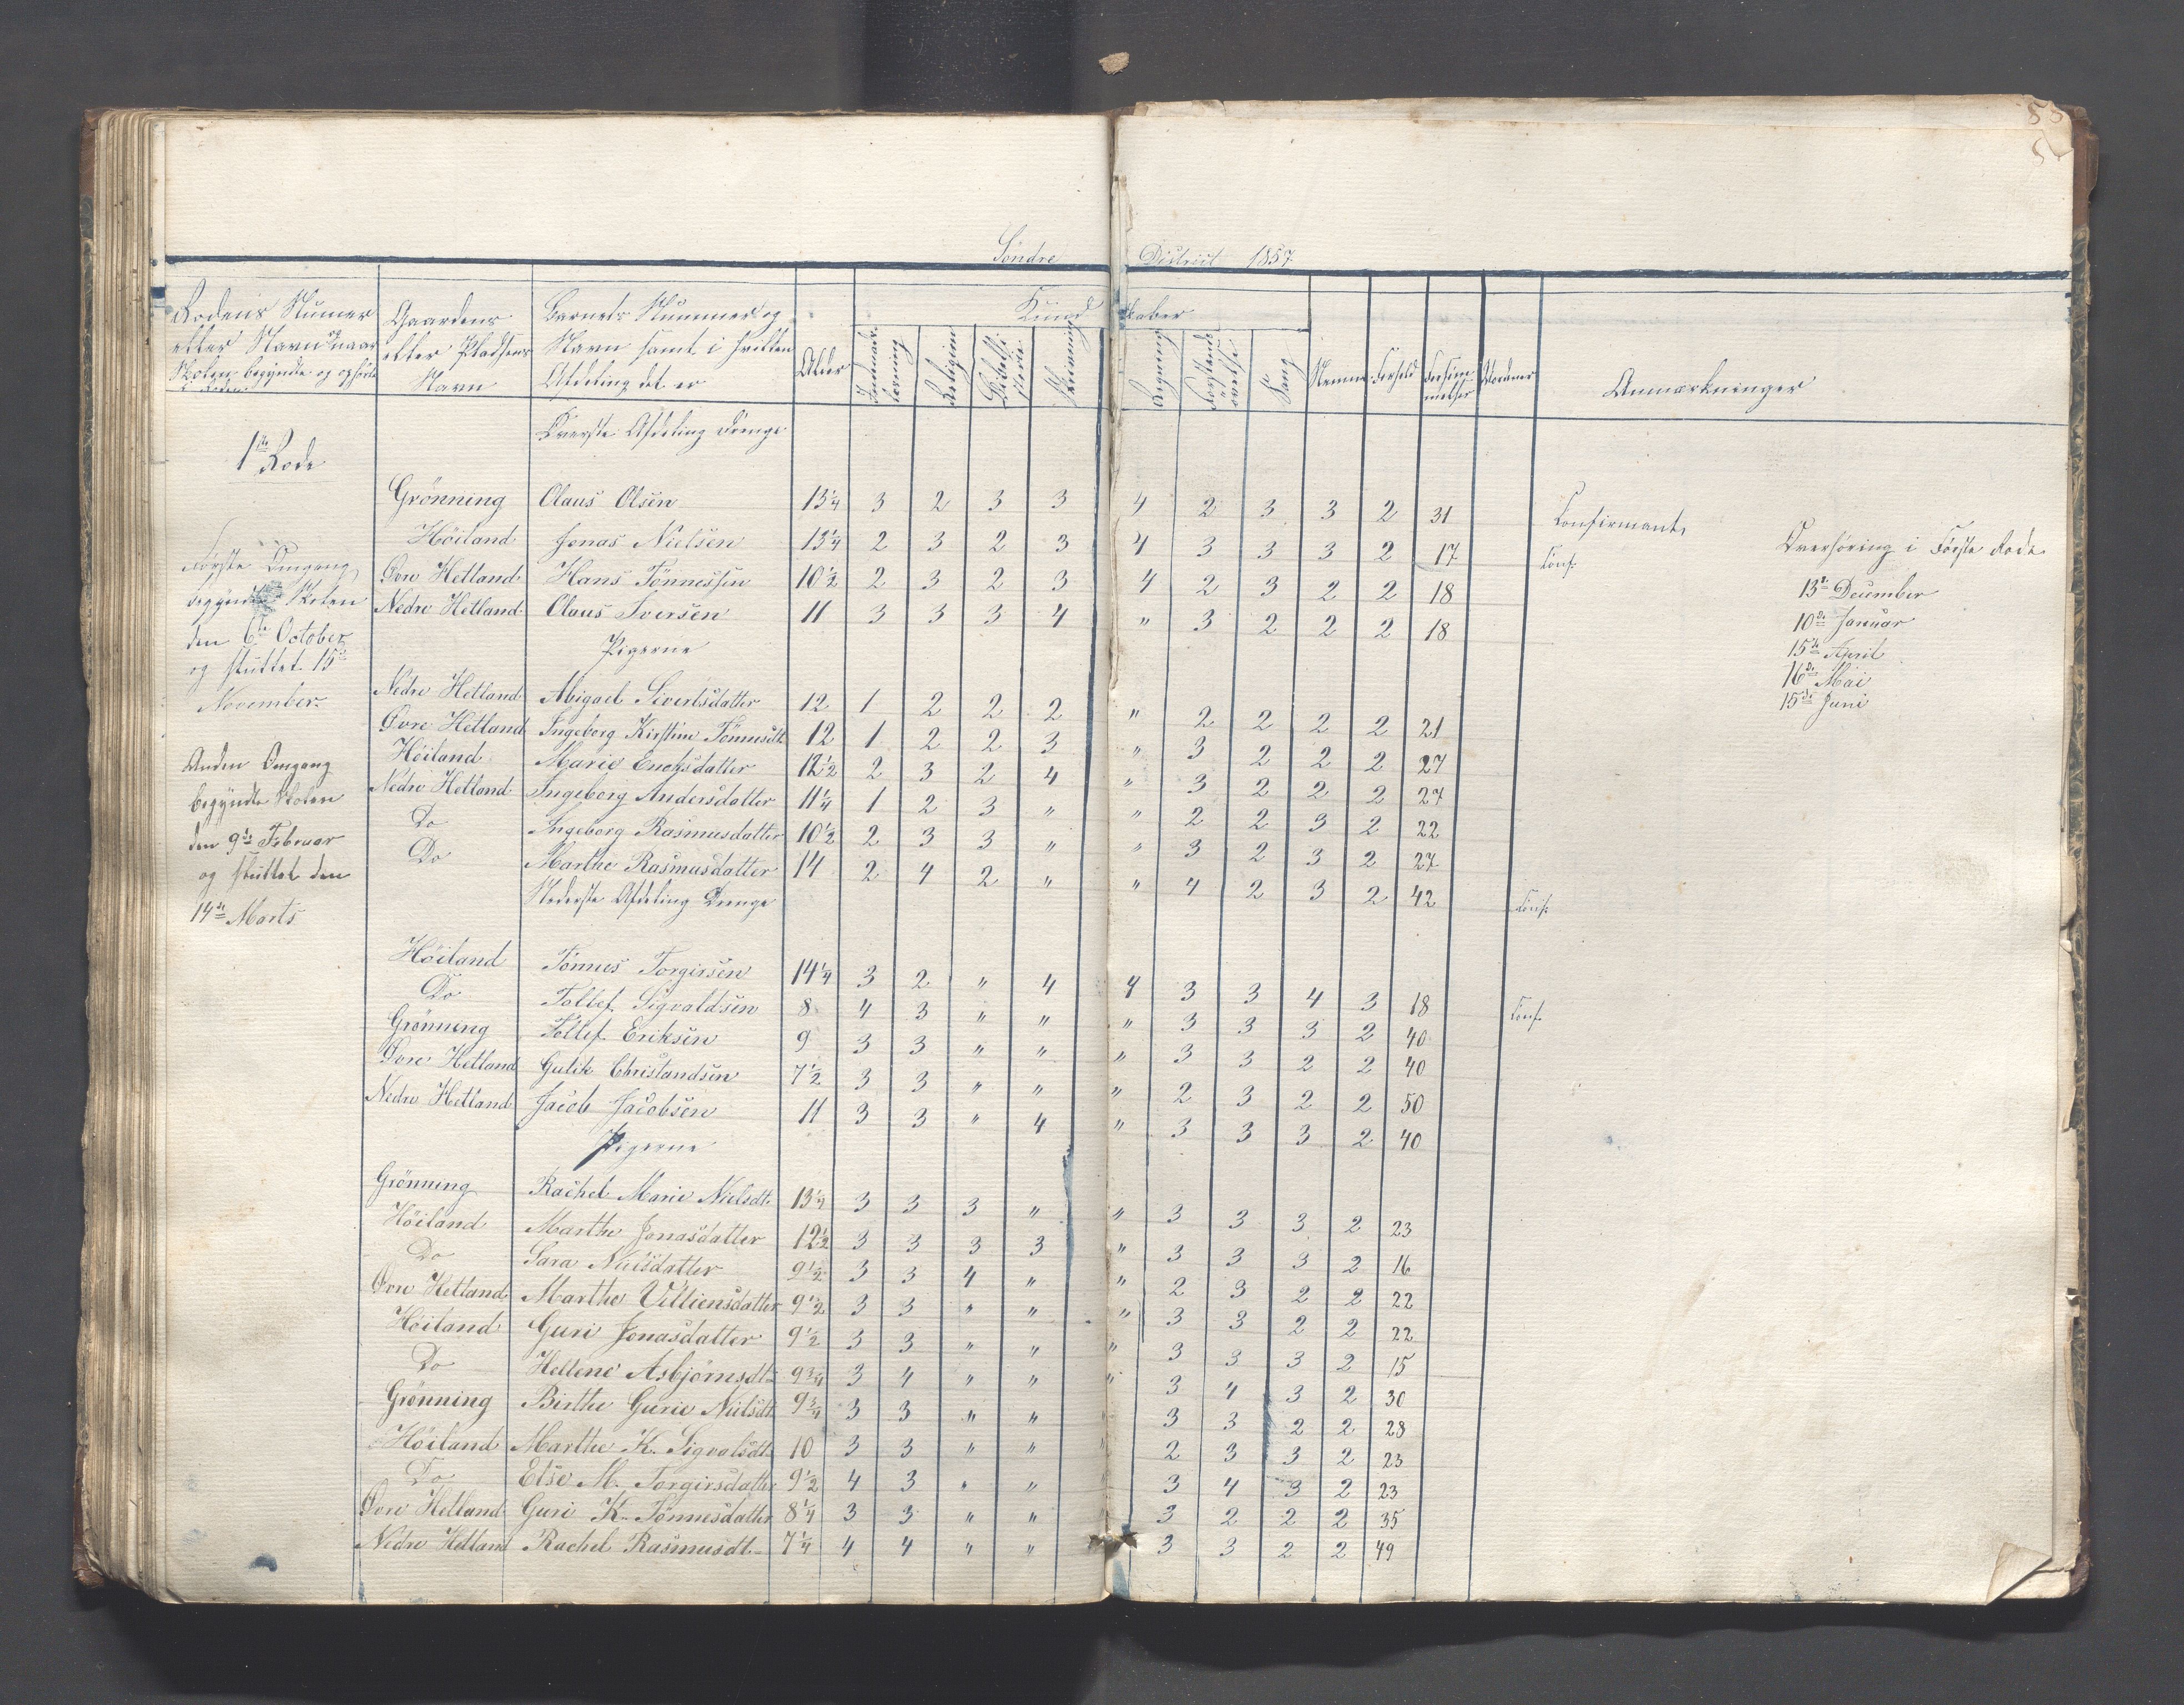 58
Søndre District 1857
Rodens Numer Gaardens Barnets Nummer og Kund skaber
eller Navn og naar eller Pladsens Navn samt i hvilken Alder Religion Skrivning Regning Sang Nemme Forhold Forsømmelser Anmærkninger
Skolen begyndte og ophørte Navn Afdeling det er
Øverste Afdeling Drenge
1ste Rode
Grönning Olaus Olsen 13 1/4 3 2 3 3 4 2 3 3 2 31 Confirmant
Höiland Jonas Nielsen 13 1/4 2 3 2 3 4 3 3 3 2 17 Conf. Overhøring i Første Rode
Første Omgang Øvre Hetland Hans Tönnessen 10 1/2 2 3 2 3 4 2 3 2 2 18 13de December
begyndte Skolen Nedre Hetland Olaus Iversen 11 3 3 3 4 " 3 2 2 2 18 10de Januar
den 6te October Pigerne 15de April
og sluttet 15de 16de Mai
November Nedre Hetland Abigael Sivertsdatter 12 1 2 2 2 " 2 2 2 2 21 15de Juni
Øvre Hetland Ingeborg Kirstine Tönnesdt 12 1 2 2 3 " 3 2 2 2 27
Anden Omgang Höiland Marie Enoksdatter 12 1/2 2 3 2 4 " 3 2 2 2 27
begyndte Skolen Nedre Hetland Ingeborg Andersdatter 11 1/4 1 2 3 " " 2 2 3 2 22
den 9de Februar Do Ingeborg Rasmusdatter 10 1/2 2 3 3 " " 3 2 3 2 27
og sluttet den Do Marthe Rasmusdatter 14 2 4 2 " " 4 2 3 2 42 Conf.
14de Marts Nederste Afdeling Drenge
Höiland Tönnes Torgirsen 14 1/4 3 2 " 4 4 3 3 4 3 18 Conf.
Do Tollef Sigvaldsen 8 4 3 " " " 3 3 3 2 40
Grönning Tollef Eriksen 9 3 3 " " " 3 3 2 2 40
Øvre Hetland Gulik Christandsen 7 1/2 3 3 " " " 2 3 2 2 50
Nedre Hetland Jacob Jacobsen 11 3 3 " 4 " 3 3 3 2 40
Pigerne
Grönning Rachel Marie Nielsdt. 13 1/4 3 3 3 " " 3 3 3 2 23
Höiland Marthe Jonasdatter 12 1/2 3 3 3 3 " 3 3 3 2 16
Do Sara Nielsdatter 9 1/2 3 3 4 " " 2 3 2 2 22
Øvre Hetland Marthe Villiensdatter 9 1/2 3 3 " " " 3 3 2 2 22
Höiland Guri Jonasdatter 9 1/2 3 3 " " " 3 3 3 2 15
Do Hellene Asbjörnsdt. 9 3/4 3 4 " " " 3 4 3 2 30
Grönning Birthe Gurie Nielsdt. 9 3/4 3 3 " " " 3 3 2 2 28
Höiland Marthe K. Sigvalsdt. 10 3 3 " " " 2 3 3 2 23
Do Else M. Torgirsdatter 9 1/2 4 3 " " 3 4 3 2 23
Øvre Hetland Guri K. Tönnesdatter 8 1/4 3 3 " " 3 2 2 2 35
Nedre Hetland Rachel Rasmusdt. 7 1/4 4 4 " " 3 3 2 2 49